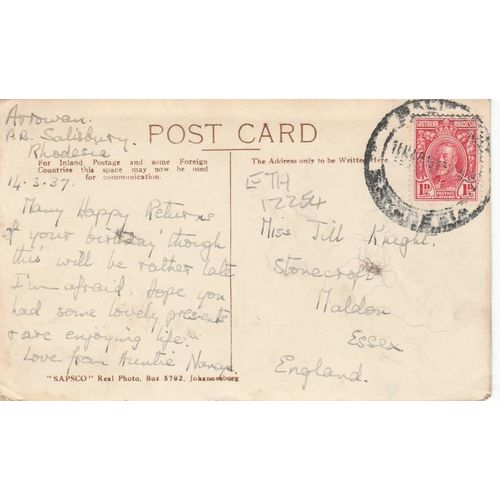 Arrowan.
P.B. Salisbury.
Rhodesia
POST CARD
For Inland Postage and some Foreign
Countries this space may now be used
for communication.
The Address only to be Written Here.
14.3.37.
Many Happy Returns
of your birthday though
this will be rather late
I'm afraid. Hope you
had some lovely presents
& are enjoying life.
Love from Auntie Nancy.
"SAPSCO" Real Photo, Box 5792, Johannesburg
ETH
12284
Miss Jill Knight.
Stonecroft
Maldon
Essex
England.
SOUTHERN RHODESIA
1D 1D
POSTAGE